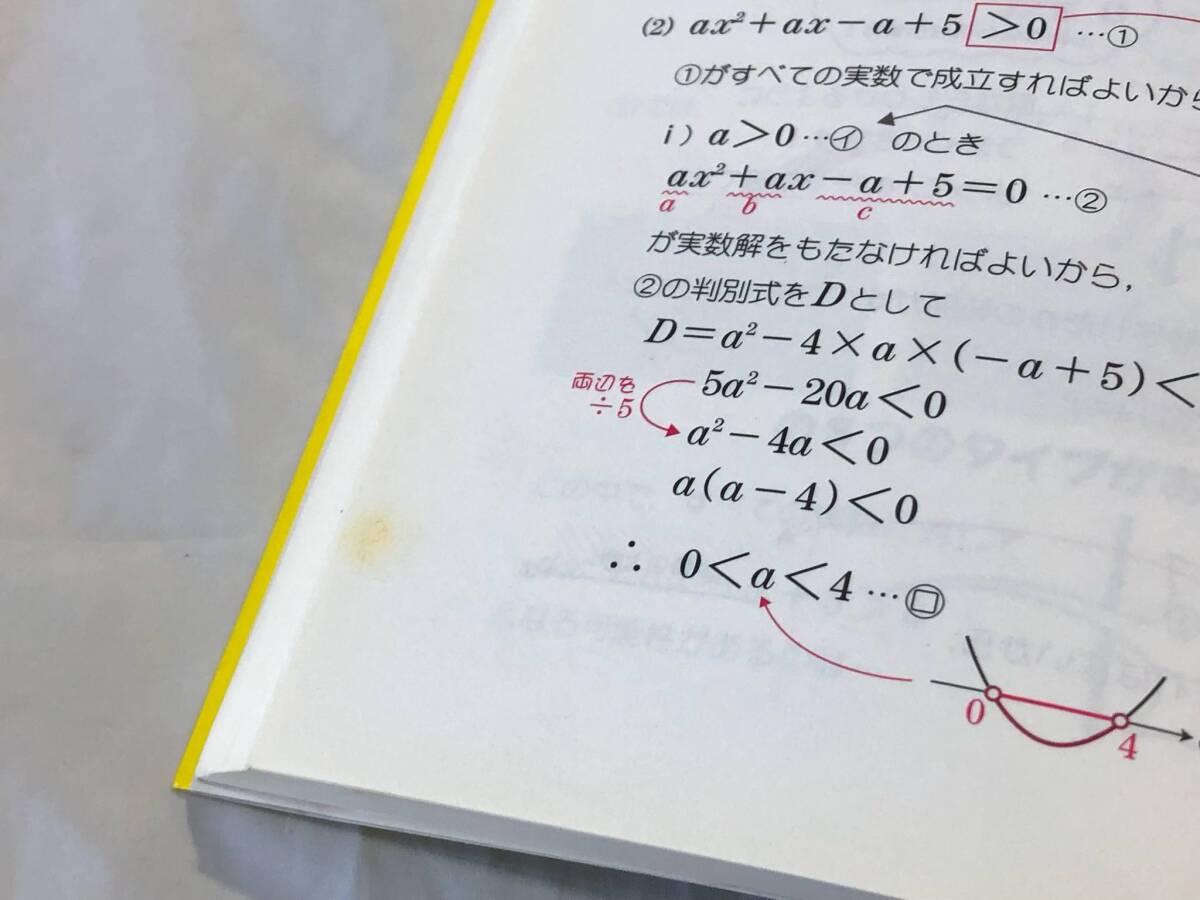 (2) ax²+ax−a+5 >0 …①
①がすべての実数で成立すればよいから
ⅰ) a>0…㋑ のとき
ax²+ax−a+5=0 …②
a b c
が実数解をもたなければよいから,
②の判別式をDとして
D=a²−4×a×(−a+5)<
両辺を
÷5
5a²−20a<0
a²−4a<0
a(a−4)<0
∴ 0<a<4 …㋺
0 4